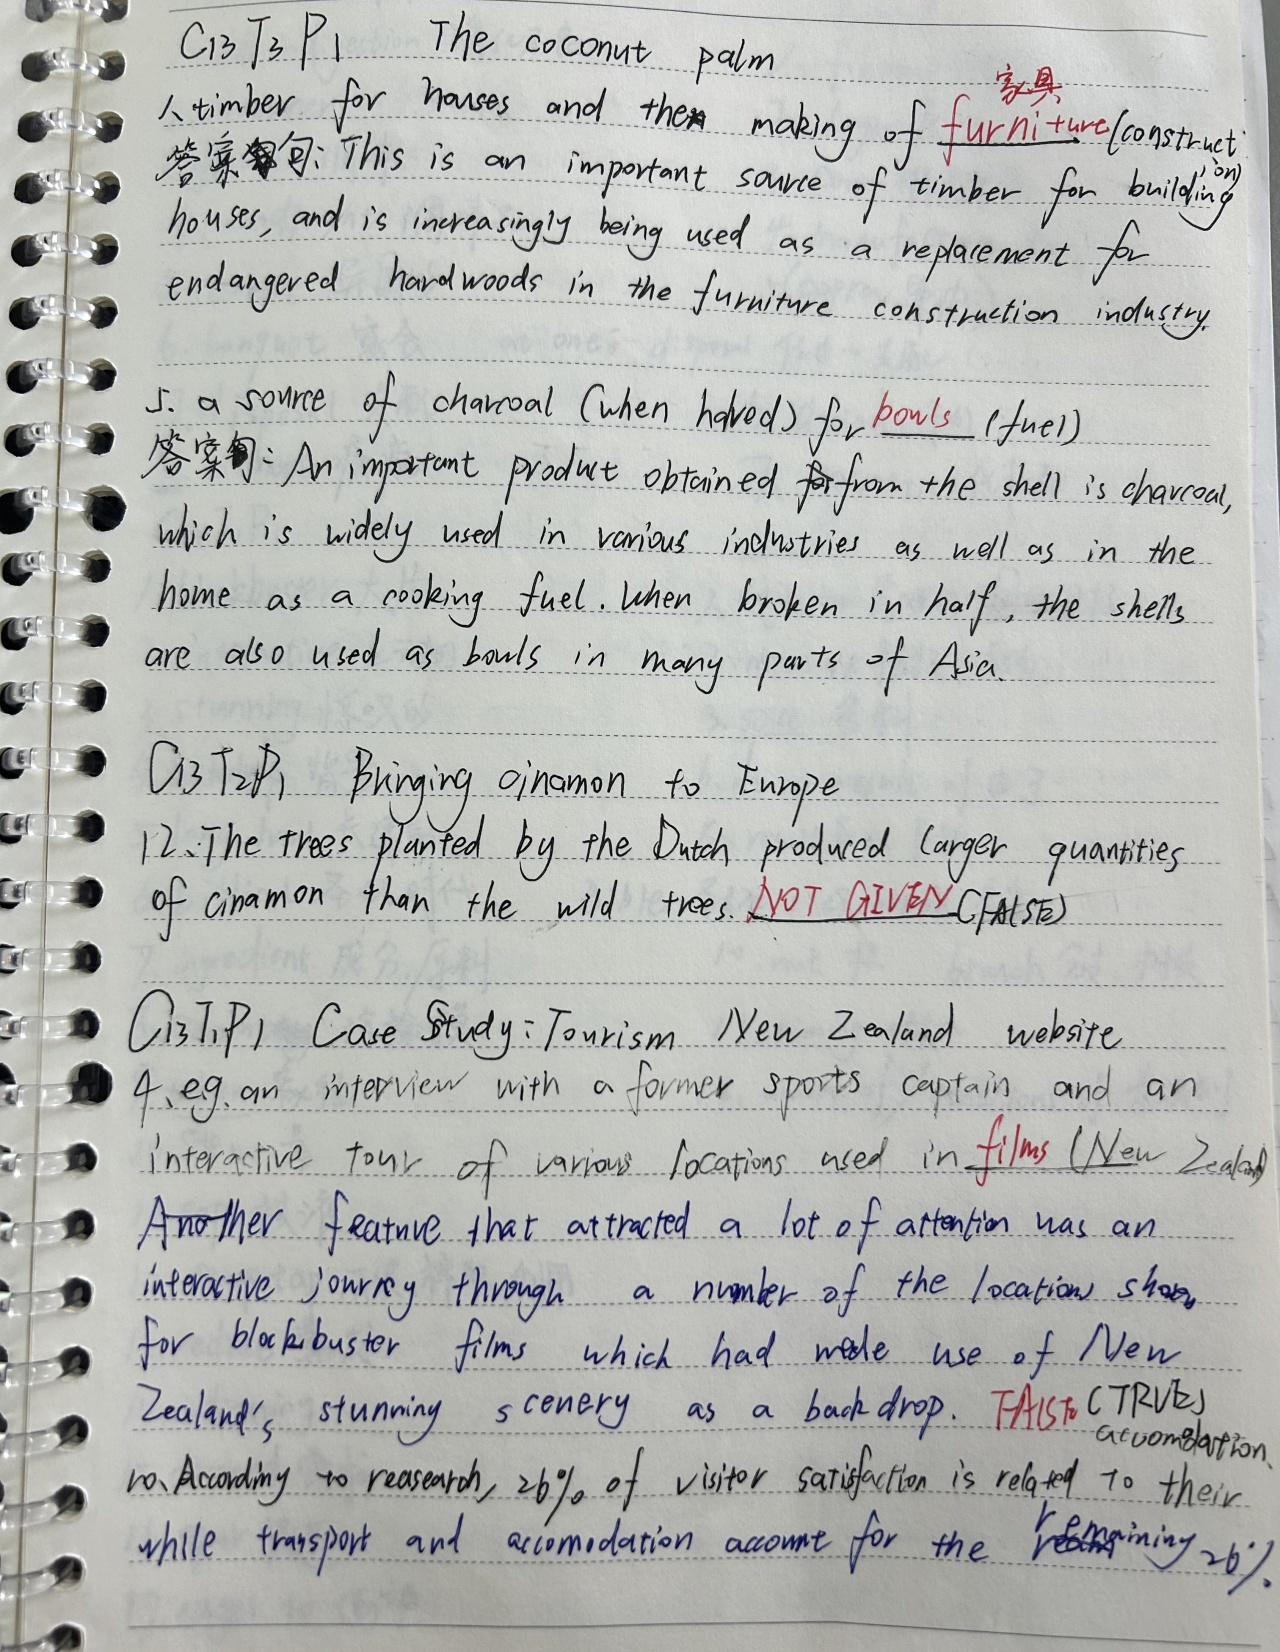 C13 T3 P1 The coconut palm
家具
1、timber for houses and the making of furniture (construction)
答案句: This is an important source of timber for building
houses, and is increasingly being used as a replacement for
endangered hardwoods in the furniture construction industry.
5. a source of charcoal (when halved) for bowls (fuel)
答案句: An important product obtained from the shell is charcoal,
which is widely used in various industries as well as in the
home as a cooking fuel. When broken in half, the shells
are also used as bowls in many parts of Asia.
C13 T2 P1 Bringing cinamon to Europe
12、The trees planted by the Dutch produced larger quantities
of cinamon than the wild trees. NOT GIVEN (FALSE)
C13 T1 P1 Case Study: Tourism New Zealand website
4、eg. an interview with a former sports captain and an
interactive tour of various locations used in films (New Zealand)
Another feature that attracted a lot of attention was an
interactive journey through a number of the locations
for blockbuster films which had made use of New
Zealand's stunning scenery as a backdrop. FALSE (TRUE)
accomodation.
10、According to reasearch, 26% of visitor satisfaction is related to their
while transport and accomodation account for the remaining 26%.